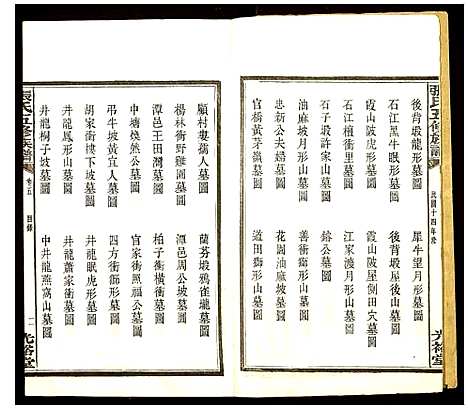 張氏五修族譜
民國十四年修
光裕堂
後背塅龍形墓圖
犀牛望月形墓圖
石江黑牛眠形墓圖
後背塅屋後山墓圖
霞山陂虎形墓圖
霞山陂屋側田穴墓圖
石江檀衝里墓圖
江家渡月形山墓圖
子子塅許家山墓圖
鎔公墓圖
忠新公夫婦墓圖
善衝衝形山墓圖
南山月形墓圖
花園油麻坡墓圖
官橋黃茅嶺墓圖
道田獅形山墓圖
顧村婁孺人墓圖
蘭芬塅鴉雀壠墓圖
楊林衝野雞園墓圖
潭邑周公坡墓圖
潭邑王田灣墓圖
柏子衝橫衝墓圖
中塘煥然公墓圖
官家衝照福公墓圖
弔牛坡黃宜人墓圖
四方衝獅形墓圖
胡家衝塘下坡墓圖
井龍眠虎形墓圖
井龍鳳形山墓圖
井龍蕭家衝墓圖
井龍桐子坡墓圖
中井龍燕窩山墓圖
張氏五修族譜
卷五
目錄
二
光裕堂